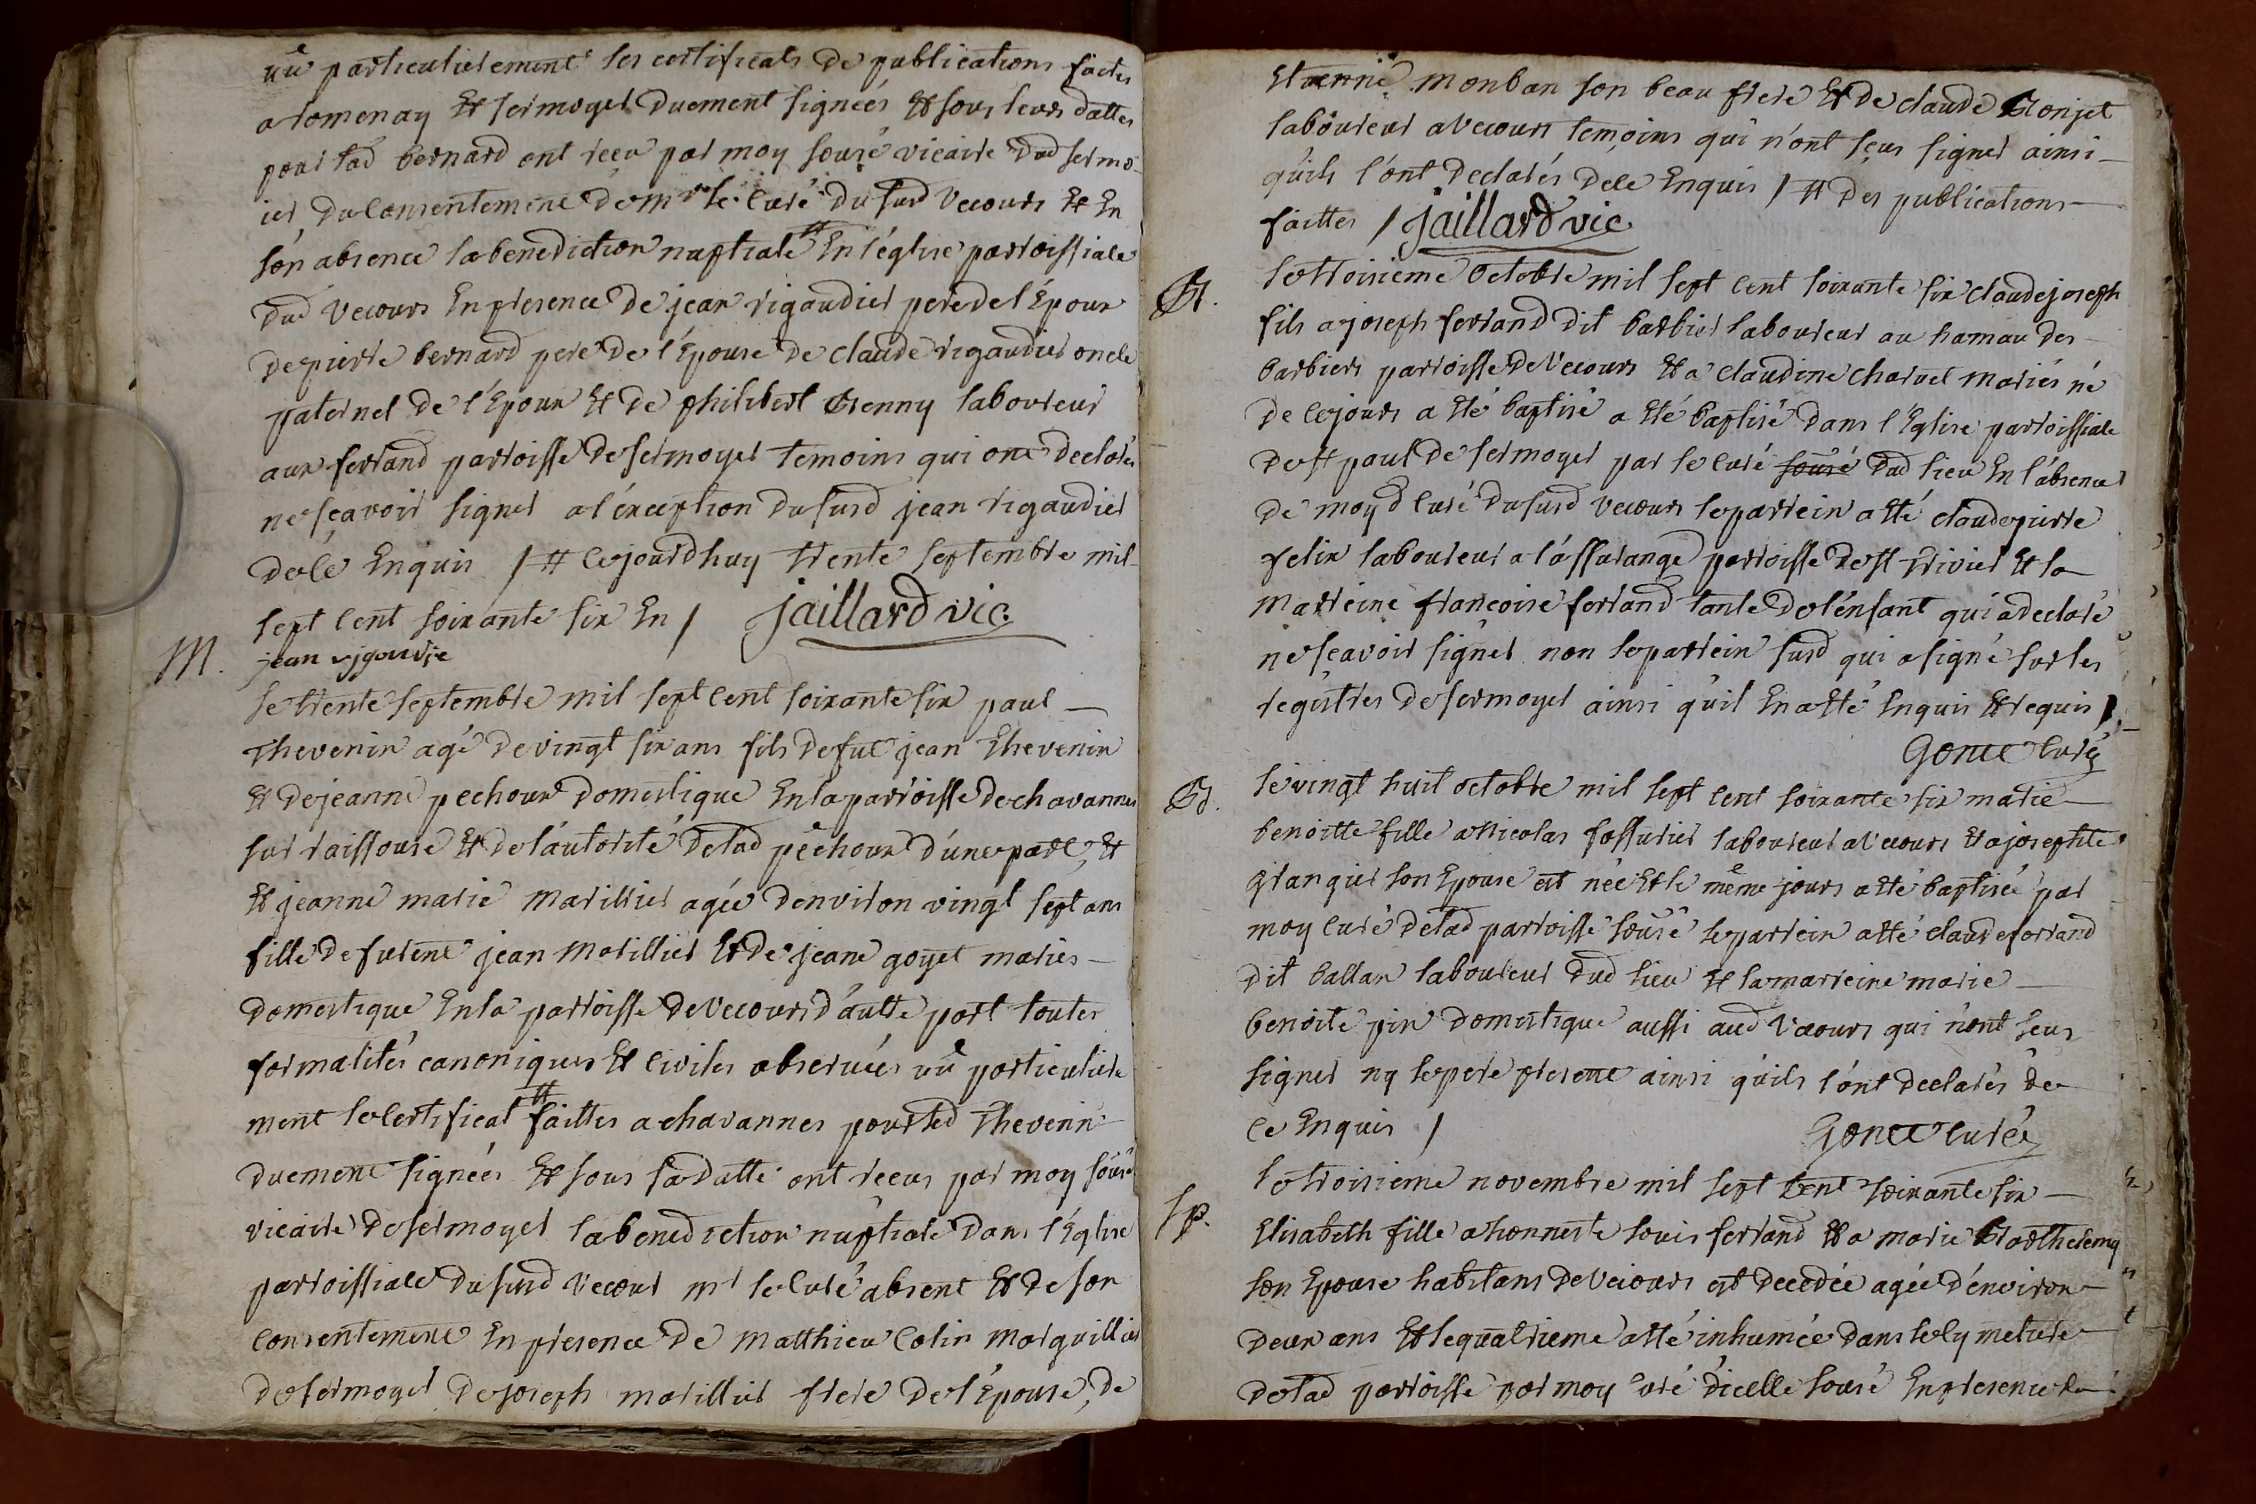 vû particulierement les certificats de publications faites
a romenay Et sermoyer Duement signées Et sous leurs dattes
pour lad bernard ont receu par moy soussé vicaire Dud sermo-
ier Du Consentement de mr le Curé du susd Vecours Et En
son absence la benediction nuptiale # En l'église parroissiale
Dud Vecours En presence De jean rigaudier pere de l'Epoux
De pierre bernard pere De l'Epouse De Claude rigaudier oncle
paternel De l'Epoux Et De philibert Grenny laboureur
aux ferrand parroisse De sermoyer temoins qui ont declarés
ne sçavoir signer a l'exception Du susd jean rigaudier
De ce Enquis / # Cejourdhuy trente septembre mil
sept Cent soixante six En / jaillard vic.
M.
jean rigaudie
Le trente septembre mil sept Cent soixante six paul
Thevenin agé De vingt six ans fils De fut jean Thevenin
Et De jeanne pechoux Domestique En la parroisse De chavannes
sur raissouse Et De l'autorité De lad pechoux d'une part, Et
Et jeanne marie marillier agée D'environ vingt sept ans
fille De furent jean Marillier Et De jeane goyet maries
Domestique En la parroisse De Vecours D'autre part toutes
formalités canoniques Et Civiles observées vû particuliere
ment le Certificat # faittes a chavannes pour led Thevenin
Duement signées Et sous sa Datte ont receus par moy soussé
vicaire De sermoyer la benediction nuptiale Dans l'Eglise
parroissiale Du susd Vecours mr le Curé absent Et De son
Consentement En presence De Matthieu Colin Marguillier
De sermoyer De joseph marillier frere De l'Epouse, De
Etienne Monban son beau frere Et De claude Gonjet
laboureur a Vecours temoins qui n'ont sçus signer ainsi
qu'ils l'ont Declarés De ce Enquis / # Des publications
faittes / jaillard vic.
Bt.
Le troisieme Octobre mil sept Cent soixante six Claude joseph
fils a joseph ferrand Dit barbier laboureur au hamau Des
barbiers parroisse De Vecours Et a Claudine Charvet Mariés né
De Cejours a Eté baptisé a Eté baptisé Dans l'Eglise parroissiale
De st paul De sermoyer par le Curé soussé Dud lieu En l'absence
De moy d Curé Du susd Vecours le parrein a Eté Claude pierre
felix laboureur a l'assurange parroisse De st trivier Et la
Marreine françoise ferrand tante De l'enfant qui a Declaré
ne sçavoir signer non le parrein susd qui a signé sur les
registres De sermoyer ainsi qu'il En a Eté Enquis Et requis /.
Gonce Curé
Bt.
Le vingt huit octobre mil sept Cent soixante six marie
benoitte fille a Nicolas fossurier laboureur a Vecours Et a josephte
granger son Epouse est née Et le même jours a Eté baptisée par
moy Curé De lad parroisse soussé le parrein a Eté Claude ferrand
Dit ballan laboureur Dud lieu Et la marreine marie
benoite pin Domestique aussi aud Vecours qui n'ont sçus
signer ny le pere present ainsi qu'ils l'ont Declarés De
Ce Enquis /
Gonce Curé
Sp.
Le troisieme novembre mil sept Cent soixante six
Elisabeth fille a honneste Louis ferrand Et a Marie Barthelemy
son Epouse habitans De Vecours est Decedée agée D'environ
Deux ans Et le quatrieme a Eté inhumée Dans le Cymetiere
De lad parroisse par moy Curé D'icelle soussé En presence De